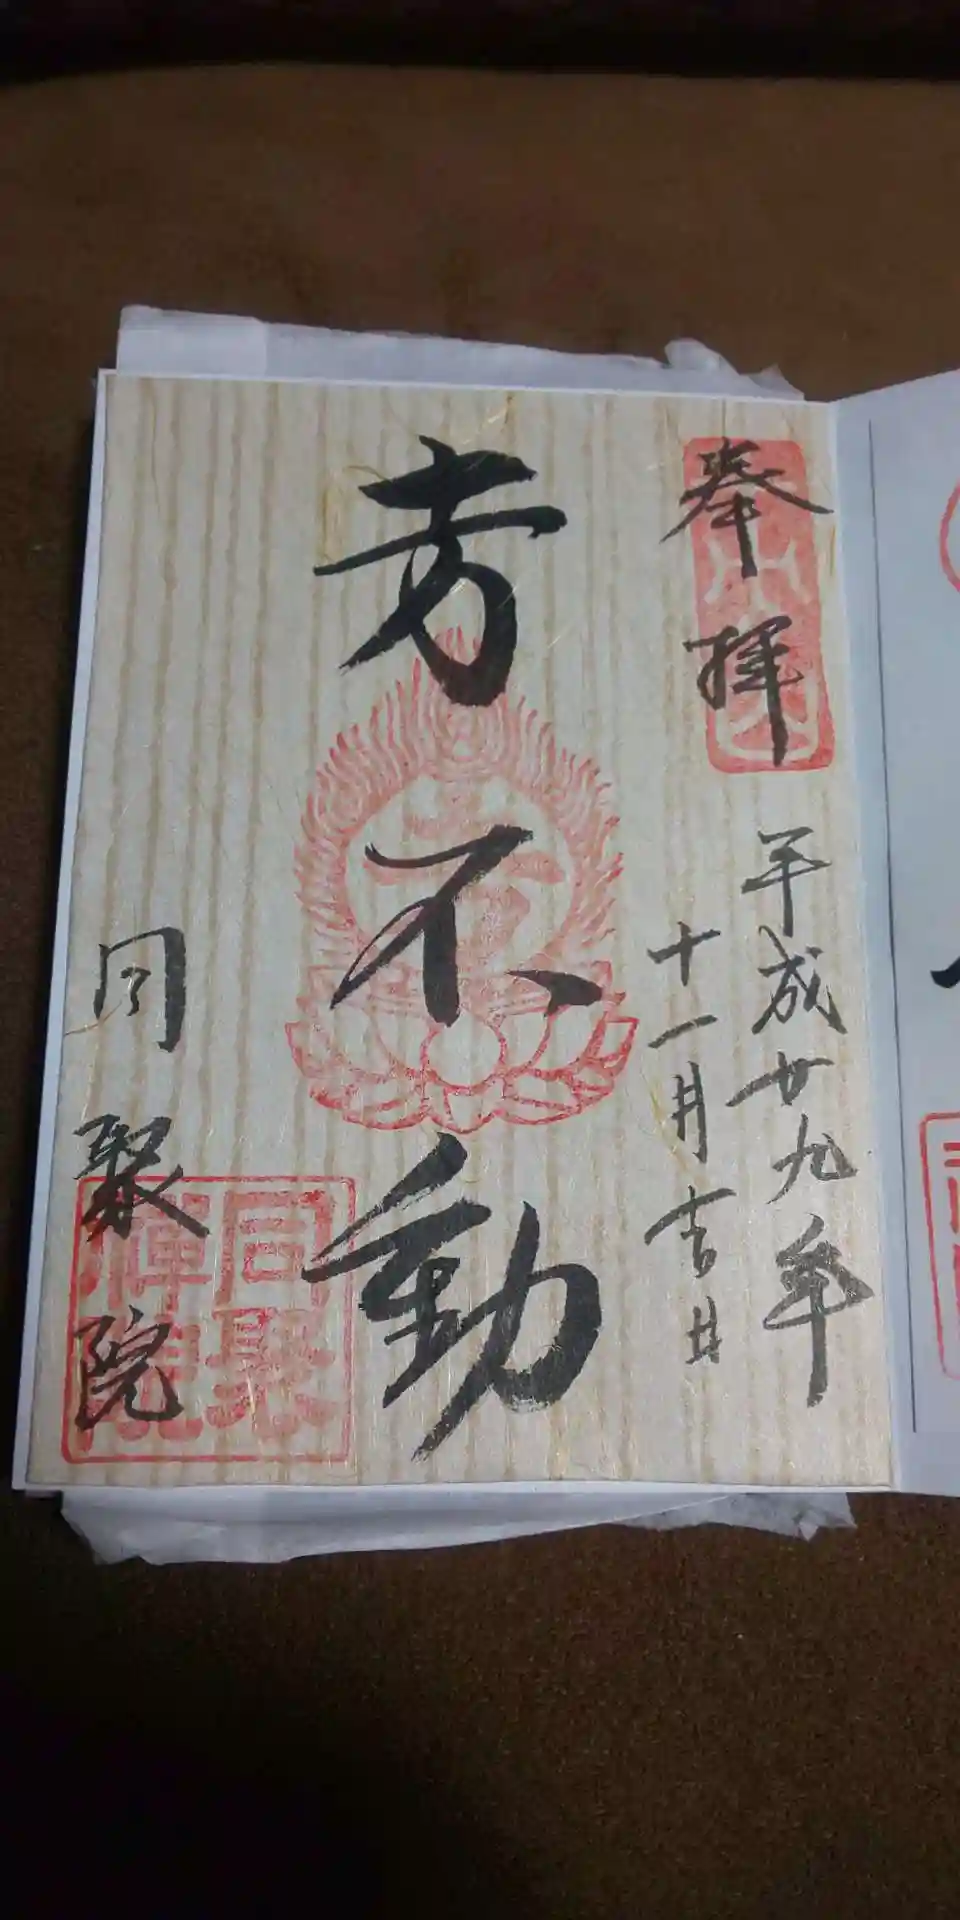 奉拝
平成廿九年
十一月吉日
十万不動
同聚院
同聚
禪院